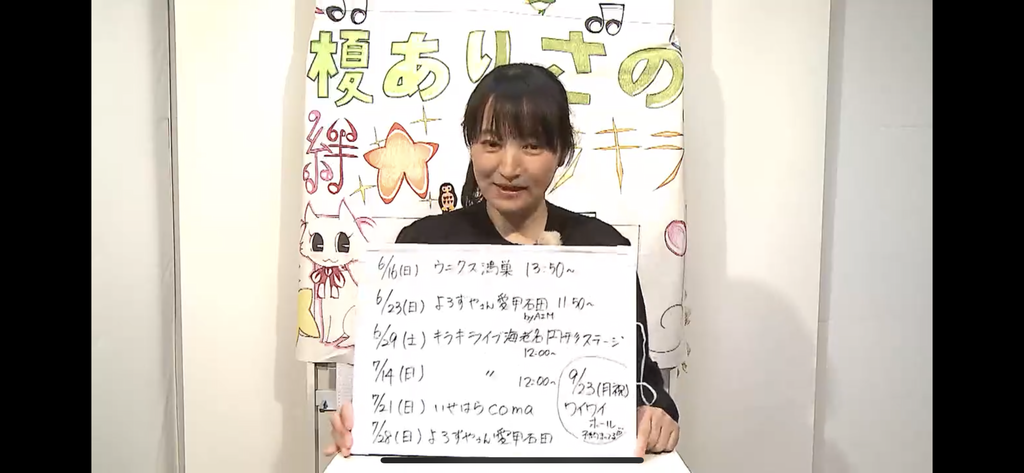 榎ありさの
絆
キラ
6/16(日) ウニクス鴻巣 13:50~
6/23(日) よろずやさん愛甲石田 11:50~
by A2M
6/29(土) キラキライブ海老名円形ステージ
12:00~
7/14(日) 〃 12:00~
7/21(日) いせはらcoma
7/28(日) よろずやさん愛甲石田
9/23(月祝)
ワイワイ
ホール